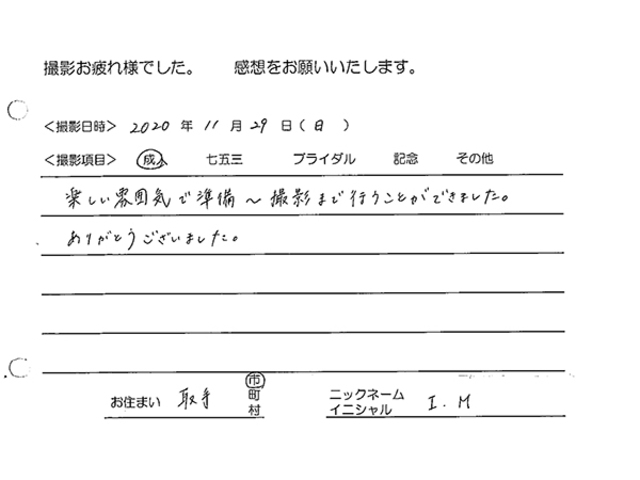 撮影お疲れ様でした。　感想をお願いいたします。
＜撮影日時＞ 2020 年 11 月 29 日（日）
＜撮影項目＞ 成人 七五三 ブライダル 記念 その他
楽しい雰囲気で準備～撮影まで行うことができました。
ありがとうございました。
お住まい 取手 市 町 村
ニックネーム イニシャル I.M